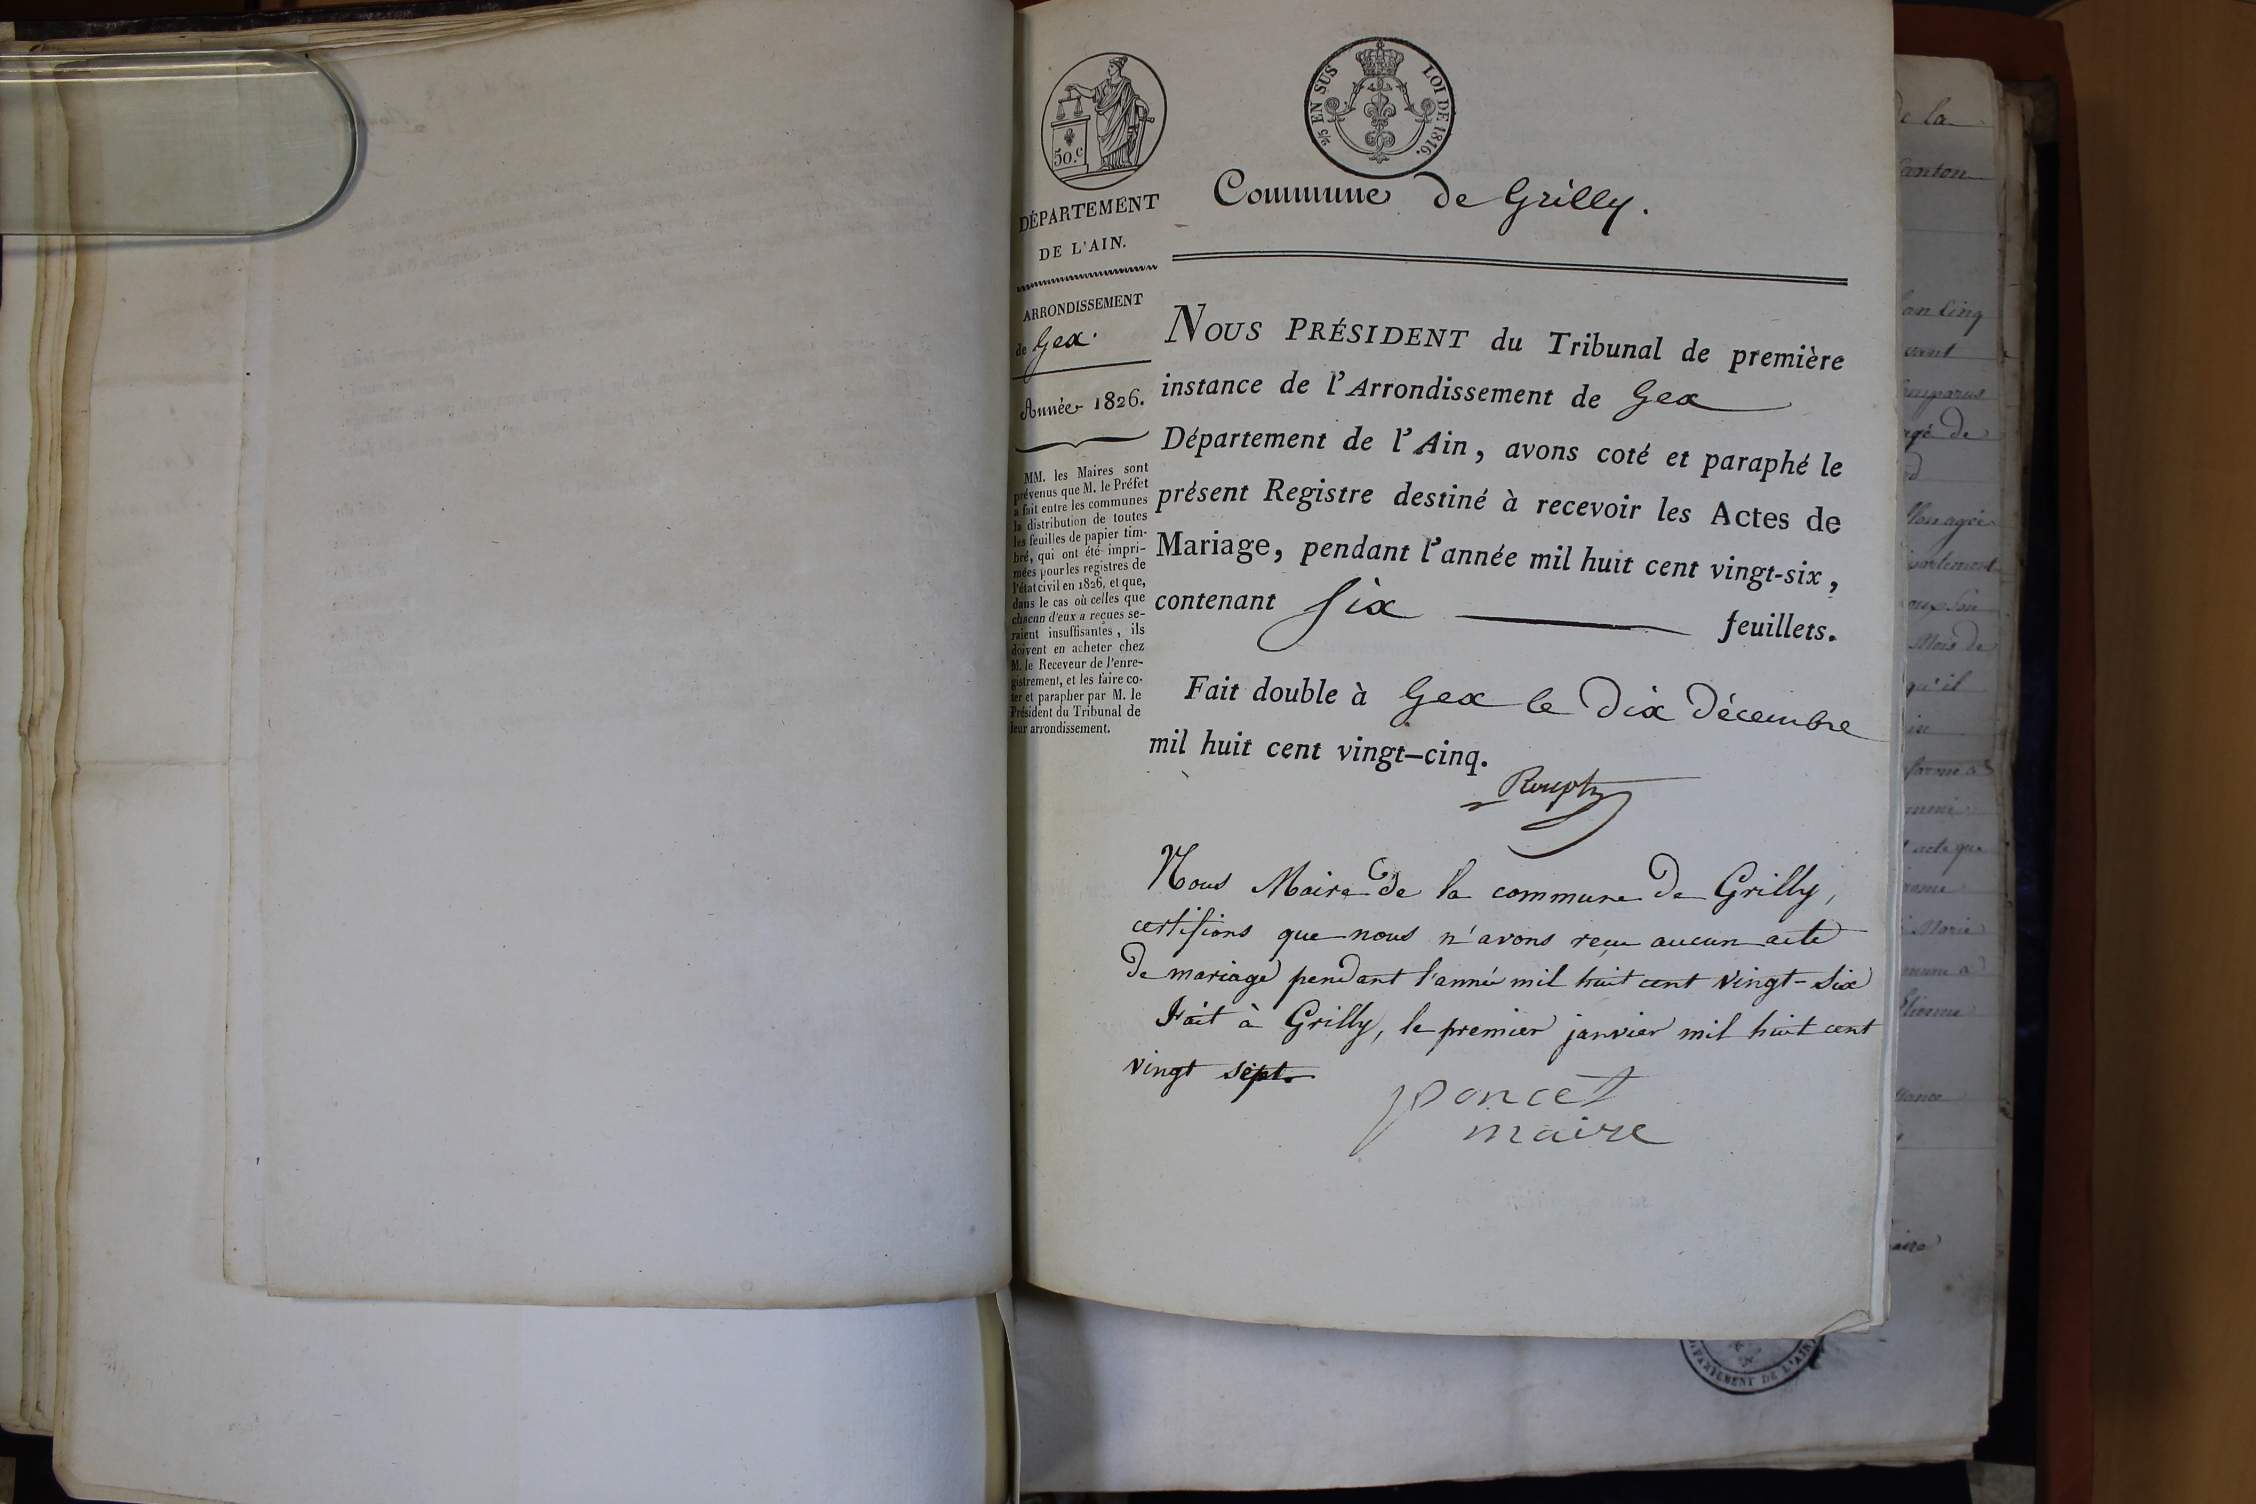 50.c
2/5 EN SUS LOI DE 1816.
DÉPARTEMENT
DE L'AIN.
ARRONDISSEMENT
de Gex.
Année 1826.
MM. les Maires sont
prévenus que M. le Préfet
a fait entre les communes
la distribution de toutes
les feuilles de papier tim-
bré, qui ont été impri-
mées pour les registres de
l'état civil en 1826, et que,
dans le cas où celles que
chacun d'eux a reçues se-
raient insuffisantes, ils
doivent en acheter chez
M. le Receveur de l'enre-
gistrement, et les faire co-
ter et parapher par M. le
Président du Tribunal de
leur arrondissement.
Commune de Grilly.
NOUS PRÉSIDENT du Tribunal de première
instance de l'Arrondissement de Gex
Département de l'Ain, avons coté et paraphé le
présent Registre destiné à recevoir les Actes de
Mariage, pendant l'année mil huit cent vingt-six,
contenant six feuillets.
Fait double à Gex le dix Décembre
mil huit cent vingt-cinq.
Nous Maire de la commune de Grilly,
certifions que nous n'avons reçu aucun acte
de mariage pendant l'année mil huit cent vingt-six
Fait à Grilly, le premier janvier mil huit cent
vingt sept.
poncet
maire
de la
canton
an cinq
comparus
âgé de
Mois de
qu'il
acte que
Marie
Etienne
DÉPARTEMENT DE L'AIN